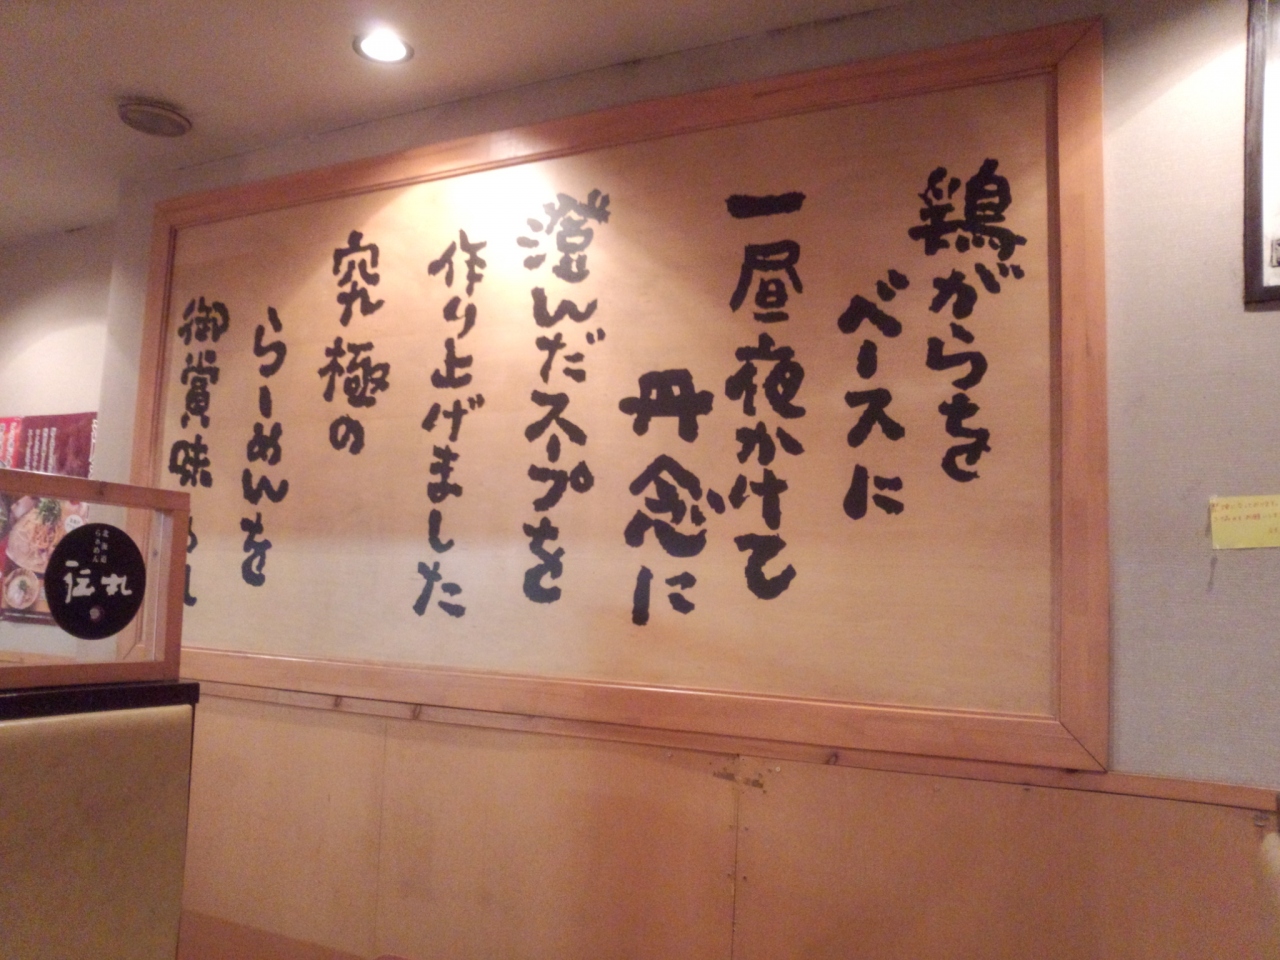 鶏がらを
ベースに
一昼夜かけて
丹念に
澄んだスープを
作り上げました
究極の
らーめんを
御賞味
北海道
らぁめん
伝丸